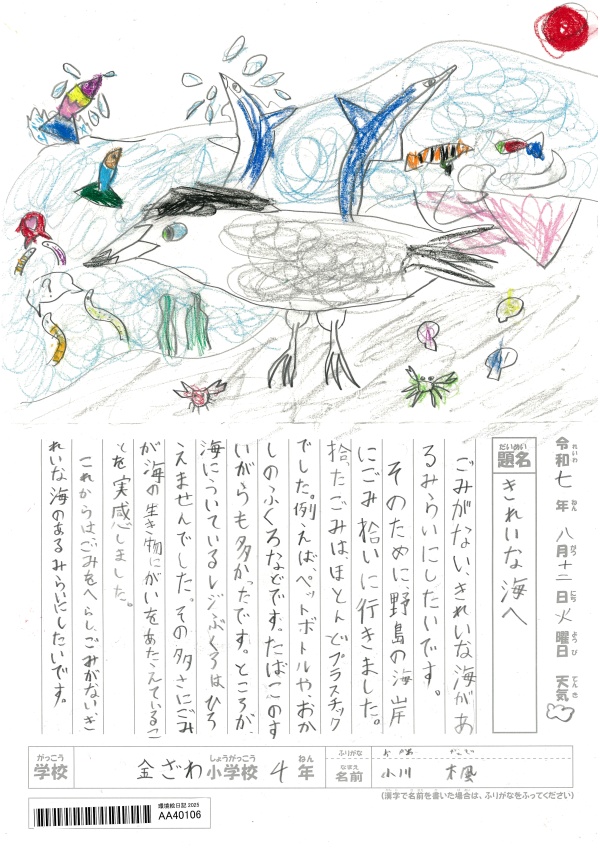 令和七年八月十二日火曜日 天気
れいわ ねん がつ にち ようび てんき
だいめい
題名 きれいな海へ
ごみがない、きれいな海があ
るみらいにしたいです。
そのために、野島の海岸
にごみ拾いに行きました。
拾ったごみは、ほとんどプラスチック
でした。例えば、ペットボトルや、おか
しのふくろなどです。たばこのす
いがらも多かったです。ところが、
海にういているレジぶくろは、ひろ
えませんでした。その多さにごみ
が海の生き物にがいをあたえているこ
とを実感しました。
これからは、ごみをへらし、ごみがない、き
れいな海のあるみらいにしたいです。
がっこう しょうがっこう ねん
学校 金ざわ小学校 4年
ふりがな
なまえ
名前 小川 楓
(漢字で名前を書いた場合は、ふりがなをふってください)
環境絵日記 2025
AA40106